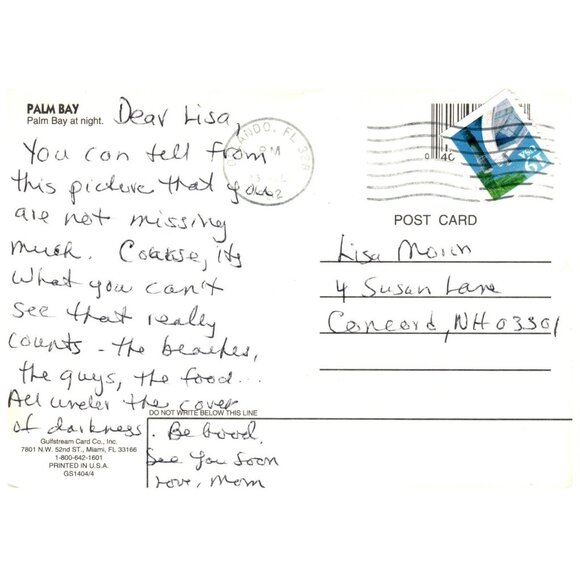 PALM BAY
Palm Bay at night.
Dear Lisa,
You can tell from
this picture that you
are not missing
much. Coarse, its
what you can't
see that really
counts - the beaches,
the guys, the food...
All under the cover
of darkness. Be Good.
See You Soon
Love, Mom
DO NOT WRITE BELOW THIS LINE
Gulfstream Card Co., Inc.
7801 N.W. 52nd ST., Miami, FL 33166
1-800-642-1601
PRINTED IN U.S.A.
GS1404/4
ORLANDO, FL 328
PM
POST CARD
Lisa Morin
4 Susan Lane
Concord, NH 03301